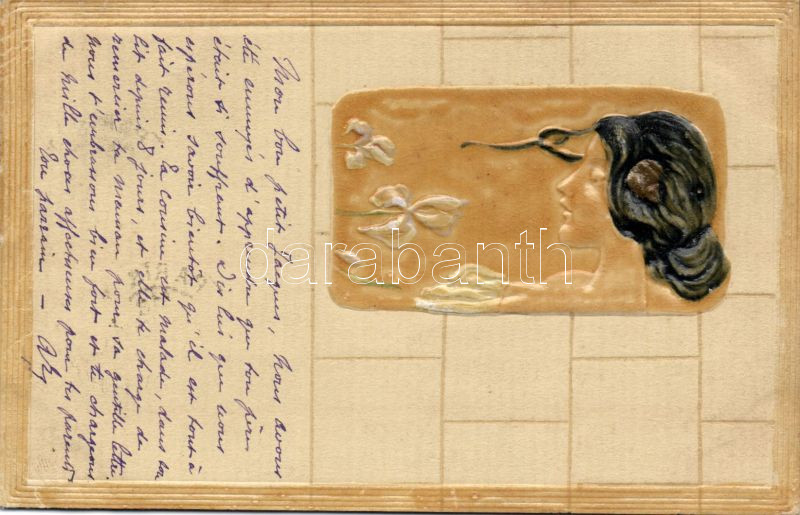 Mon bon petit Jacques, Nous avons
été ennuyés d'apprendre que ton père
était si souffrant. Dis lui que nous
espérons savoir bientôt qu'il est tout à
fait remis. La cousine est malade, dans son
lit depuis 8 jours, et elle te charge de
remercier ta maman pour sa gentille lettre
nous t'embrassons bien fort et te chargeons
de mille choses affectueuses pour tes parents
Ton parrain —
darabanth